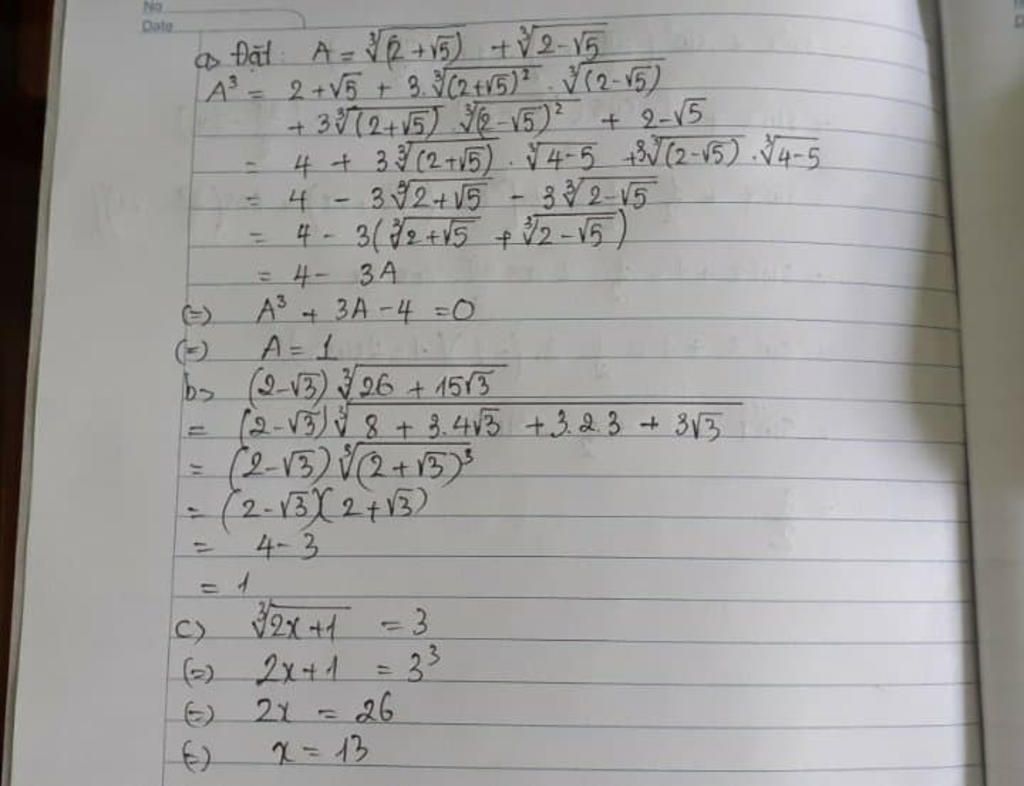 No
Date
a> Đặt: A = ∛(2 + √5) + ∛(2 - √5)
A³ = 2 + √5 + 3.∛((2+√5)²) . ∛(2-√5)
+ 3∛(2+√5) . ∛((2-√5)²) + 2-√5
= 4 + 3∛(2+√5) . ∛(4-5) + 3∛(2-√5) . ∛(4-5)
= 4 - 3∛(2+√5) - 3∛(2-√5)
= 4 - 3(∛(2+√5) + ∛(2-√5))
= 4 - 3A
(=) A³ + 3A - 4 = 0
(=) A = 1
b> (2-√3) ∛(26 + 15√3)
= (2-√3) ∛(8 + 3.4√3 + 3.2.3 + 3√3)
= (2-√3) ∛((2+√3)³)
= (2-√3)(2+√3)
= 4 - 3
= 1
c> ∛(2x+1) = 3
(=) 2x+1 = 3³
(=) 2x = 26
(=) x = 13